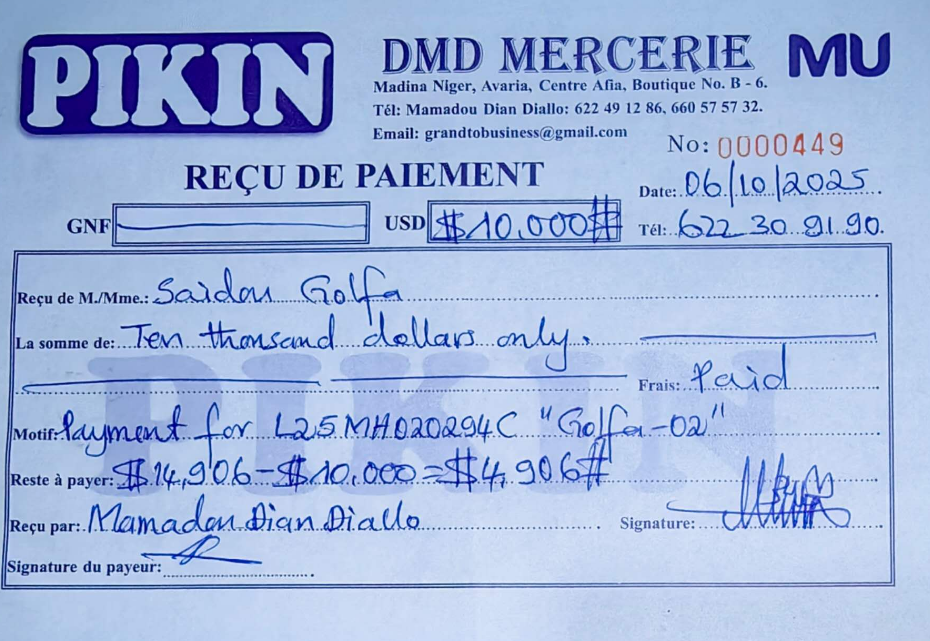 PIKIN
DMD MERCERIE
MU
Madina Niger, Avaria, Centre Afia, Boutique No. B - 6.
Tél: Mamadou Dian Diallo: 622 49 12 86, 660 57 57 32.
Email: grandtobusiness@gmail.com
No: 0000449
REÇU DE PAIEMENT
Date: 06/10/2025
GNF
USD $10.000#
Tél: 622 30 91 90.
Reçu de M./Mme.: Saidou Golfa
La somme de: Ten thousand dollars only.
Frais: Paid
Motif: Payment for L25MH020294C "Golfa-02"
Reste à payer: $14,906-$10.000=$4,906#
Reçu par: Mamadou Dian Diallo
Signature:
Signature du payeur:
PIKIN